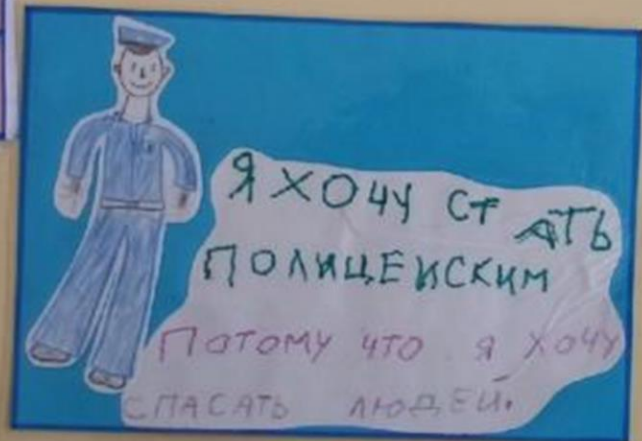 Я ХОЧУ СТ АТЬ
ПОЛИЦЕИСКИМ
ПОТОМУ ЧТО Я ХОЧУ
СПАСАТЬ ЛЮДЕЙ.